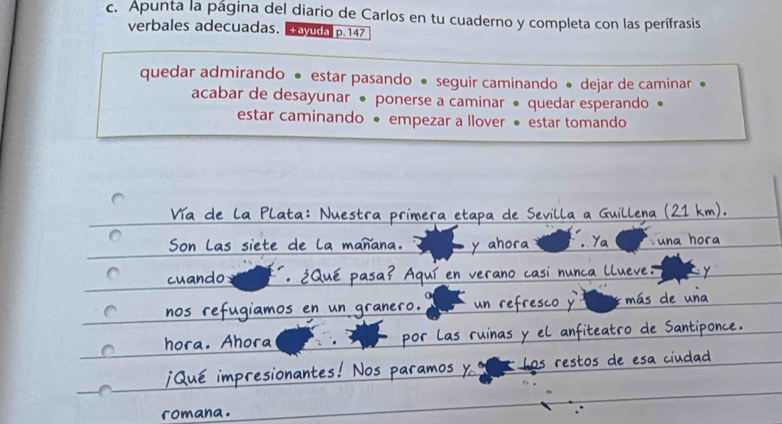 c. Apunta la página del diario de Carlos en tu cuaderno y completa con las perífrasis
verbales adecuadas. +ayuda p. 147
quedar admirando • estar pasando • seguir caminando • dejar de caminar •
acabar de desayunar • ponerse a caminar • quedar esperando •
estar caminando • empezar a llover • estar tomando
Vía de la Plata: Nuestra primera etapa de Sevilla a Guillena (21 km).
Son las siete de la mañana. y ahora . Ya una hora
cuando . ¿Qué pasa? Aquí en verano casi nunca llueve. y
nos refugiamos en un granero. un refresco y más de una
hora. Ahora . por las ruinas y el anfiteatro de Santiponce.
¡Qué impresionantes! Nos paramos y los restos de esa ciudad
romana.